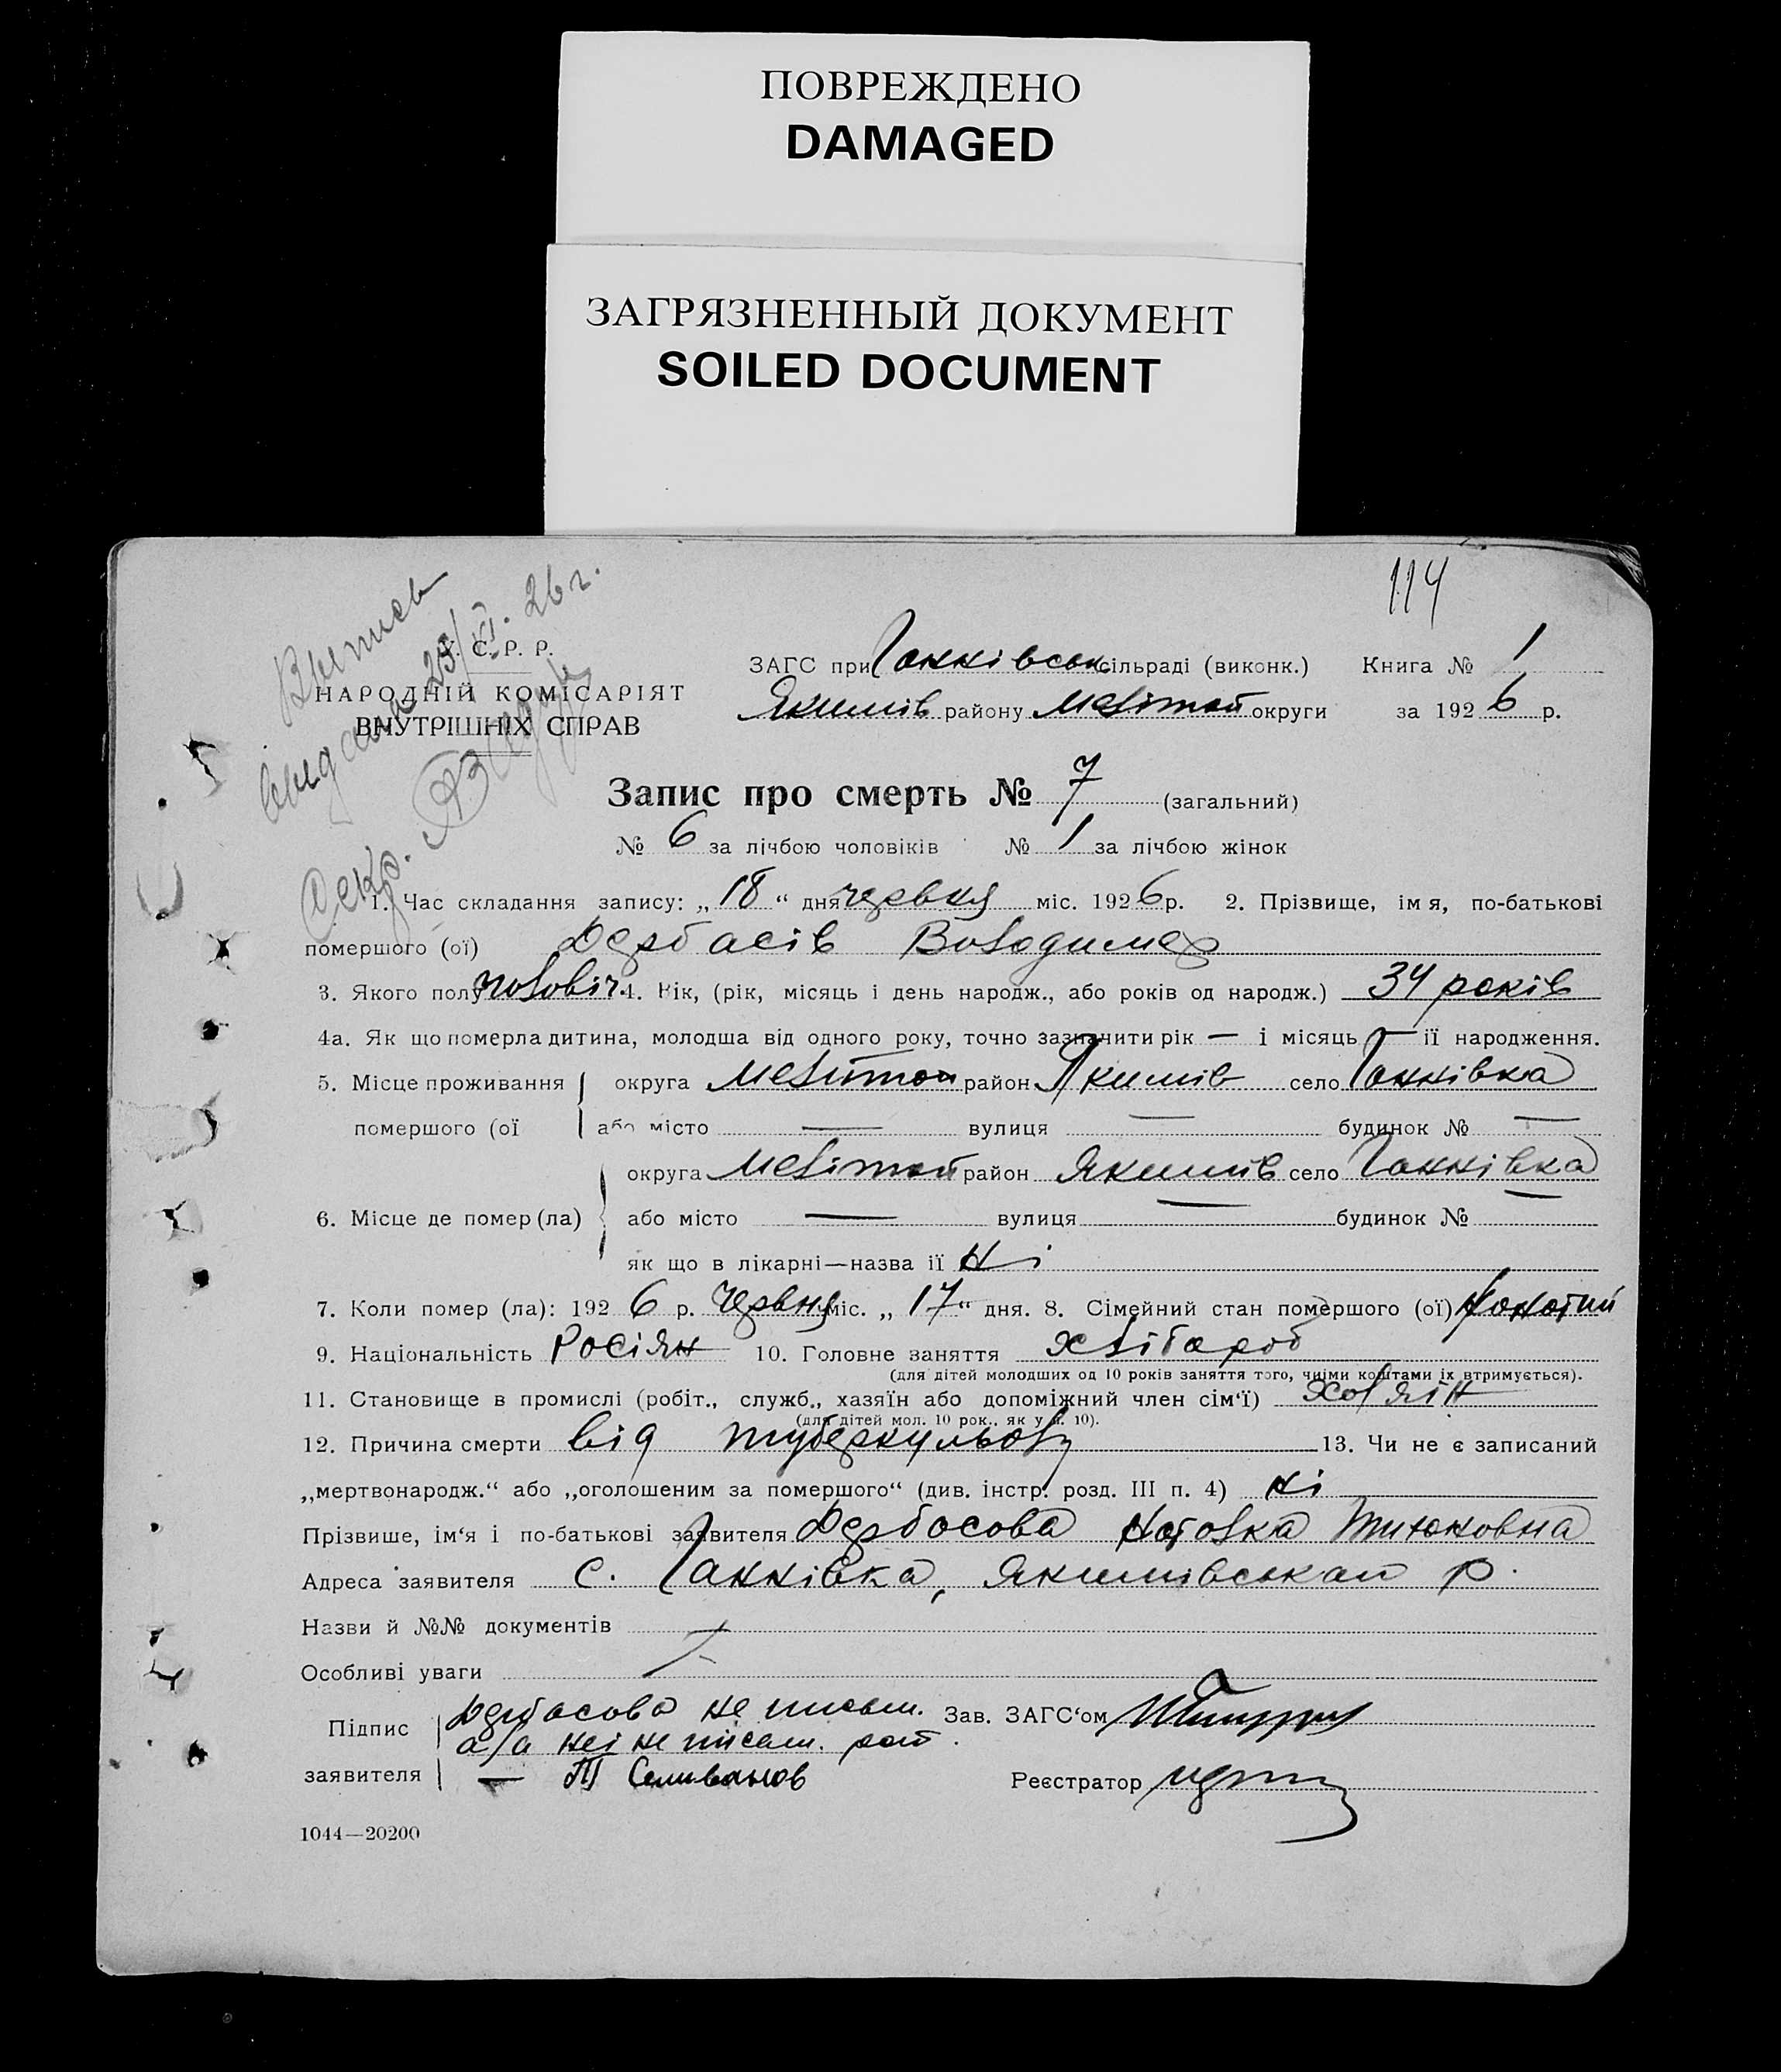 ПОВРЕЖДЕНО
DAMAGED
ЗАГРЯЗНЕННЫЙ ДОКУМЕНТ
SOILED DOCUMENT
114
Выпись
выдана 23/VI. 26 г.
Секр.
У. С. Р. Р.
НАРОДНІЙ КОМІСАРІЯТ
ВНУТРІШНІХ СПРАВ
ЗАГС при Ганнівськ. сільраді (виконк.) Книга № 1
Якимів району Мелітоп округи за 1926 р.
Запис про смерть № 7 (загальний)
№ 6 за лічбою чоловіків № 1 за лічбою жінок
1. Час складання запису: „18“ дня червня міс. 1926 р. 2. Прізвище, імя, по-батькові
помершого (ої) Дербасів Володимер
3. Якого полу чоловіч. 4. Вік, (рік, місяць і день народж., або років од народж.) 34 років
4а. Як що померла дитина, молодша від одного року, точно зазначити рік — і місяць — її народження.
5. Місце проживання округа Мелітоп район Якимів село Ганнівка
помершого (ої або місто — вулиця — будинок № —
округа Мелітоп район Якимів село Ганнівка
6. Місце де помер (ла) або місто — вулиця — будинок № —
як що в лікарні—назва її ні
7. Коли помер (ла): 1926 р. червня міс. „17“ дня. 8. Сімейний стан помершого (ої) жонатий
9. Національність Росіян 10. Головне заняття хлібороб
(для дітей молодших од 10 років заняття того, чиїми коштами їх втримується).
11. Становище в промислі (робіт., служб., хазяїн або допоміжний член сім‘ї) хозяїн
(для дітей мол. 10 рок., як у п. 10).
12. Причина смерти від туберкульозу 13. Чи не є записаний
„мертвонародж.“ або „оголошеним за помершого“ (див. інстр. розд. III п. 4) ні
Прізвише, ім‘я і по-батькові заявителя Дербасова
Адреса заявителя с. Ганнівка, Якимівськаго р.
Назви й №№ документів
Особливі уваги
Підпис Дербасова не письм. Зав. ЗАГС‘ом
а за неї не писем.
заявителя — Селиванов Реєстратор
1044—20200